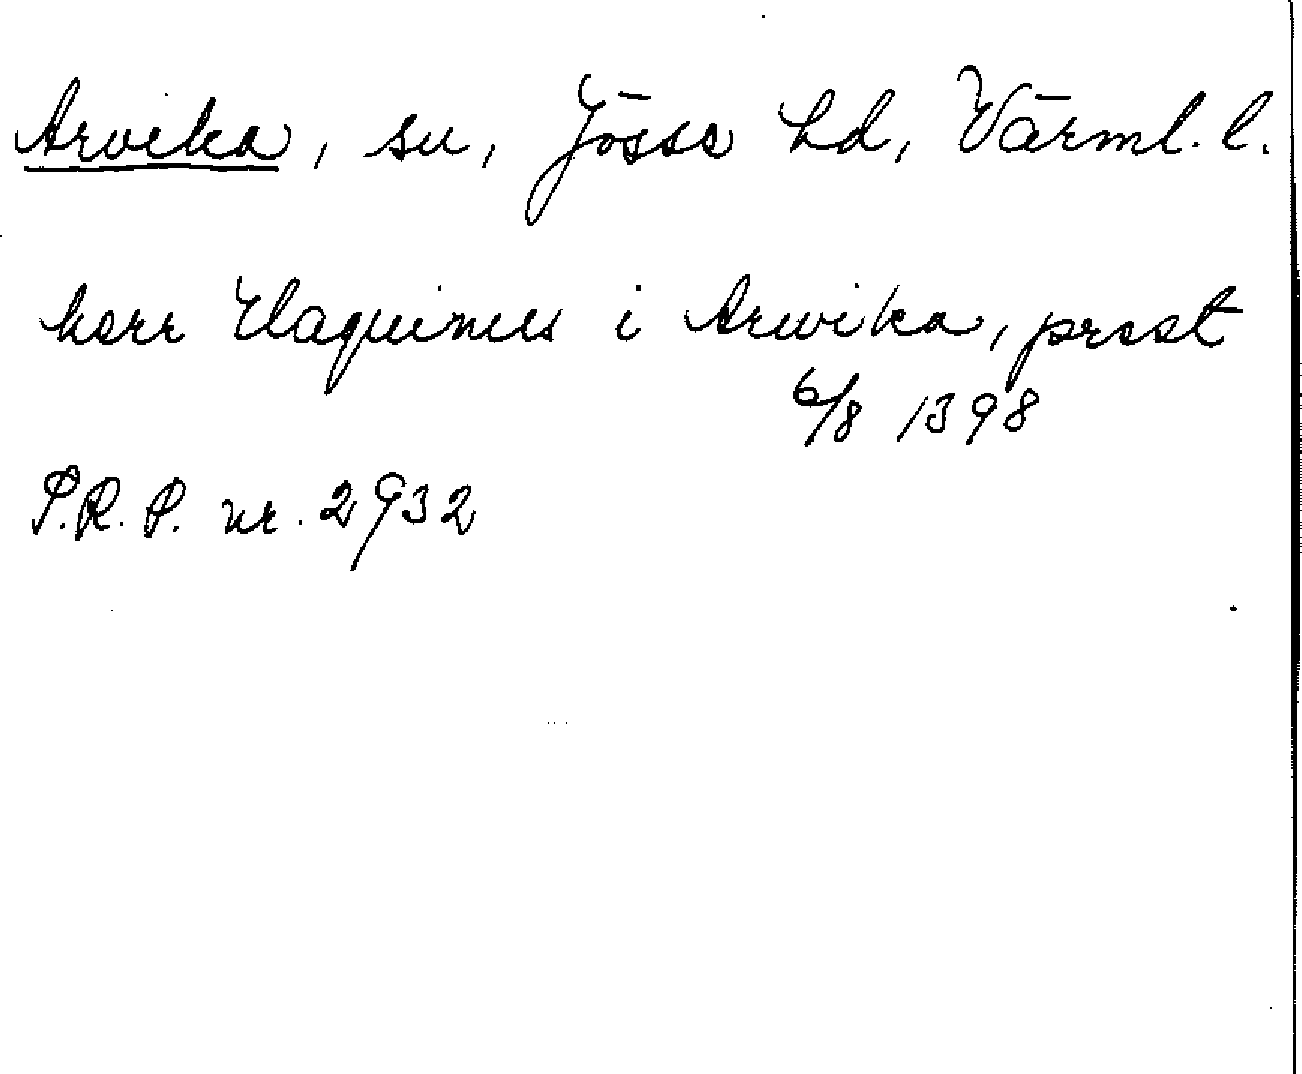 Arvika, su, Jösse hd, Värml. l.
herr Haquinus i Arwika, prost
6/8 1398
P.R.P. nr. 2932